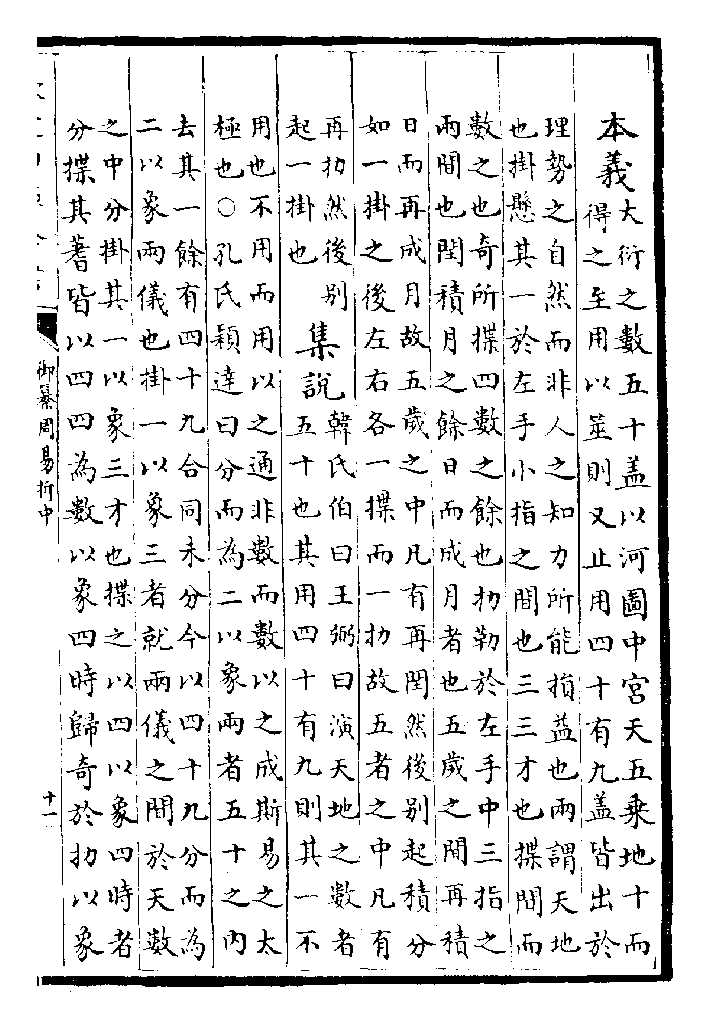 本義大衍之數五十盖以河圖中宮天五乘地十而
得之至用以筮則又止用四十有九盖皆出於
理勢之自然而非人之知力所能損益也兩謂天地
也掛懸其一於左手小指之間也三三才也揲間而
數之也奇所揲四數之餘也扐勒於左手中三指之
兩間也閏積月之餘日而成月者也五歲之間再積
日而再成月故五歲之中凡有再閏然後别起積分
如一掛之後左右各一揲而一扐故五者之中凡有
再扐然後别
起一掛也
集說韓氏伯曰王弼曰演天地之數者
五十也其用四十有九則其一不
用也不用而用以之通非數而數以之成斯易之太
極也○孔氏穎達曰分而為二以象兩者五十之內
去其一餘有四十九合同未分今以四十九分而為
二以象兩儀也掛一以象三者就兩儀之間於天數
之中分掛其一以象三才也揲之以四以象四時者
分揲其蓍皆以四四為數以象四時歸奇於扐以象
御纂周易折中
十一